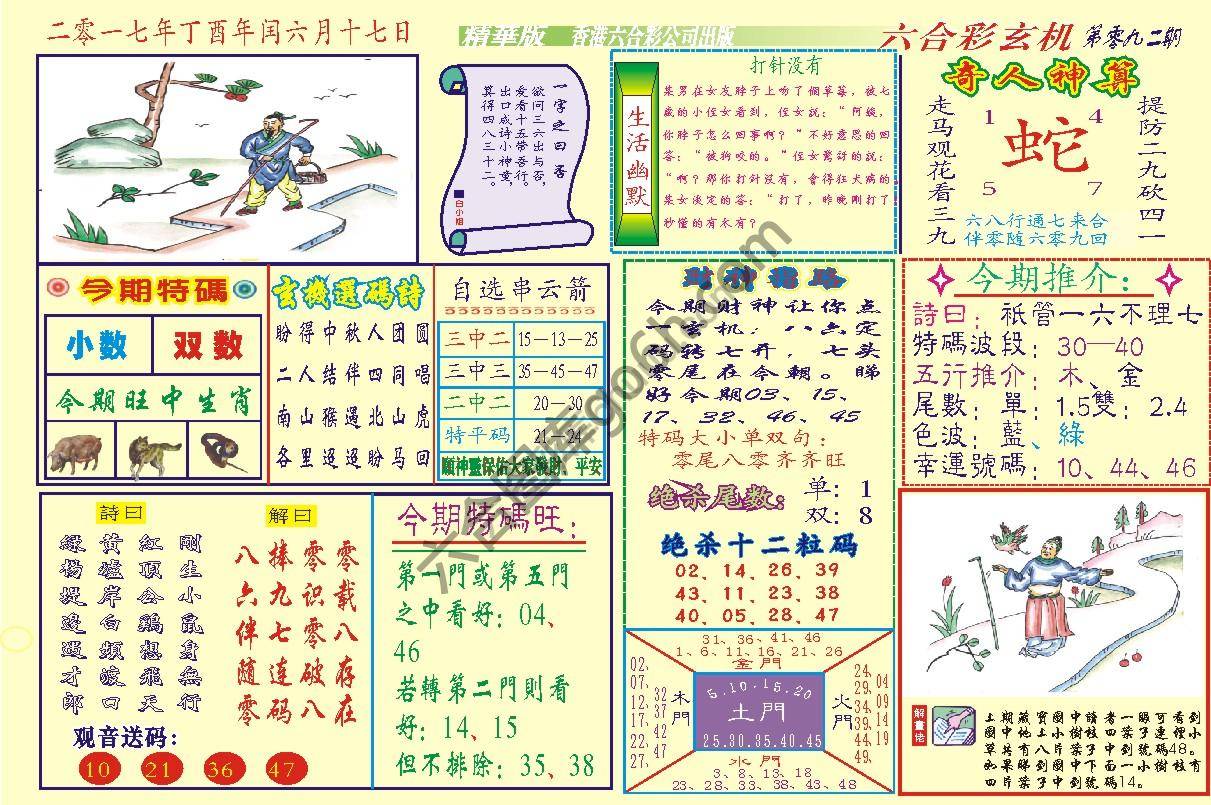 二零一七年丁酉年闰六月十七日
精華版 香港六合彩公司出版
六合彩玄机 第零九二期
一字之曰：否
欲问三六出与否，
爱看十五带吾行。
出口成诗小神童，
算得四八三十二。
白小姐
生活幽默
打针没有
某男在女友脖子上吻了個草莓，被七
歲的小侄女看到，侄女說：“阿姨，
你脖子怎么回事啊？”不好意思的回
答：“被狗咬的。”侄女驚訝的說：
“啊？那你打針沒有，會得狂犬病的
某女淡定的答：“打了，昨晚剛打了
秒懂的有木有？
奇人神算
走马观花看三九
1 4
蛇
5 7
提防二九砍四一
六八行通七来合
伴零随六零九回
今期特碼
小数 双数
今期旺中生肖
玄機選碼詩
盼得中秋人团圆
二人结伴四同唱
南山猴遇北山虎
各里迢迢盼马回
自选串云箭
三中二 15—13—25
三中三 35—45—47
二中二 20—30
特平码 21—24
願神靈保佑大家發財，平安
财神指路
今期财神让你点
一玄机，八六定
码转七开，七头
零尾在今朝。睇
好今期03、15、
17、32、46、45
特码大小单双句：
零尾八零齐齐旺
绝杀尾数： 单：1
双：8
绝杀十二粒码
02、14、26、39
43、11、23、38
40、05、28、47
今期推介：
詩曰：祇管一六不理七
特碼波段：30—40
五行推介：木、金
尾數：單：1.5雙；2.4
色波：藍、綠
幸運號碼：10、44、46
詩曰
剛生小鼠身無行
紅頂公鷄想飛天
黃爐岸白頻渡口
綠楊堤邊過才郎
解曰
零载八存在
零识零破八
捧九七连码
八六伴随零
观音送码：
10 21 36 47
今期特碼旺：
第一門或第五門
之中看好：04、
46
若轉第二門則看
好：14、15
但不排除：35、38
31、36、41、46
1、6、11、16、21、26
金門
02、07、12、17、22、27、
32、37、42、47
木門
5.10.15.20
土門
25.30.35.40.45
火門
24、29、34、39、44、49、
04、09、14、19
水門
3、8、13、18
23、28、33、38、43、48
解畫佬
上期藏寶圖中讀者一眼可看到
圖中地上小樹枝四葉子連裡小
草共有八片葉子中到號碼48。
如果睇到圖中下面一小樹枝有
四片葉子中到號碼14。
六合图库go6h.com